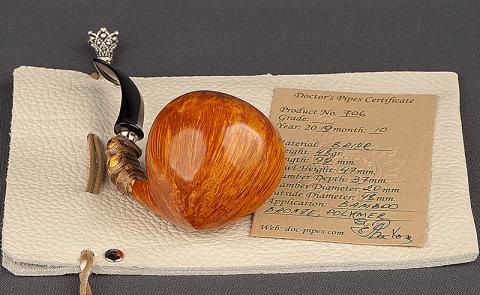 Doctor's Pipes Certificate
Product No. 706
Grade:
Year: 2019 month: 10
Material: BRIAR
Height: 48 gr.
Length: 99 mm.
Bowl Height: 47 mm.
Chamber Depth: 37 mm.
Chamber Diameter: 20 mm.
Outside Diameter: 48 mm.
Application: BAMBOO
BRONZE, POLYMER
Web: doc-pipes.com